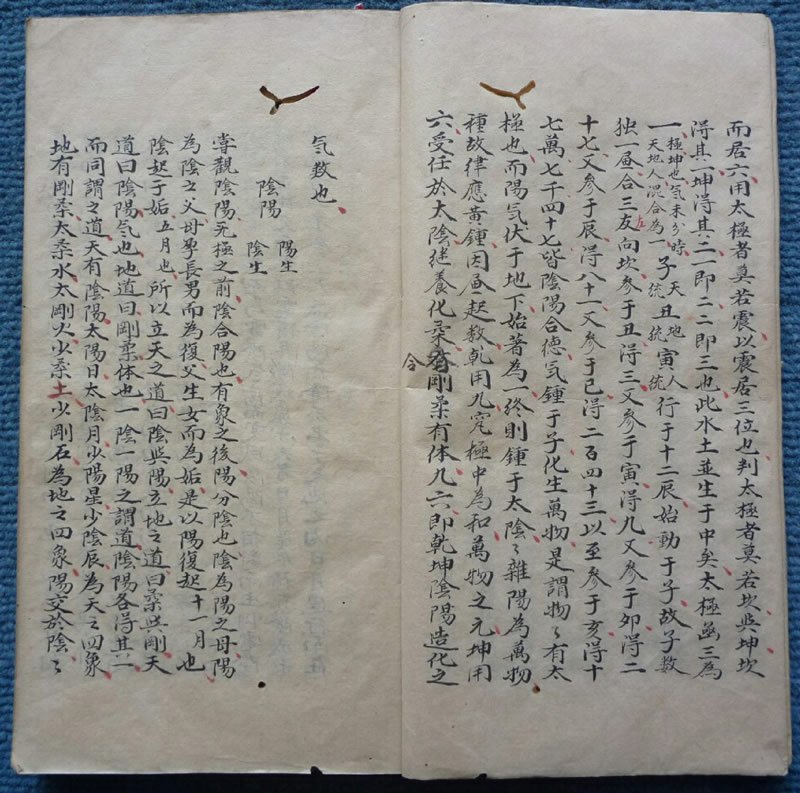 而居六用太極者莫若震以震居三位也判太極者莫若坎与坤坎
得其一坤得其二一即二二即三也此水土並生于中矣太極凾三為
一極坤也気未分時天地人混合為一子天統丑地統寅人統行于十二辰始動于子故子数
独一昼合三友左向坎参于丑得三又参于寅得九又参于夘得二
十七又参于辰得八十一又参于巳得二百四十三以至参于亥得十
七萬七千四十七皆陰陽合徳気鍾于子化生萬物是謂物〻有太
極也而陽気伏于地下始著為一終則鍾于太陰〻雜陽為萬物
種故律應黃鍾因而起数乹用九究極中為和萬物之元坤用
六受任於太陰継養化柔合剛柔有体九六即乾坤陰陽造化之
気数也
陰陽 陽生 陰生
嘗觀陰陽无極之前陰合陽也有象之後陽分陰也陰為陽之母陽
為陰之父母孕長男而為復父生女而為姤是以陽復起十一月也
陰起于姤五月也所以立天之道曰陰与陽立地之道曰柔与剛天
道曰陰陽気也地道曰剛柔体也一陰一陽之謂道陰陽各得其一
而同謂之道天有陰陽太陽日太陰月少陽星少陰辰為天之四象
地有剛柔太柔水太剛火少柔土少剛石為地之四象陽交於陰〻